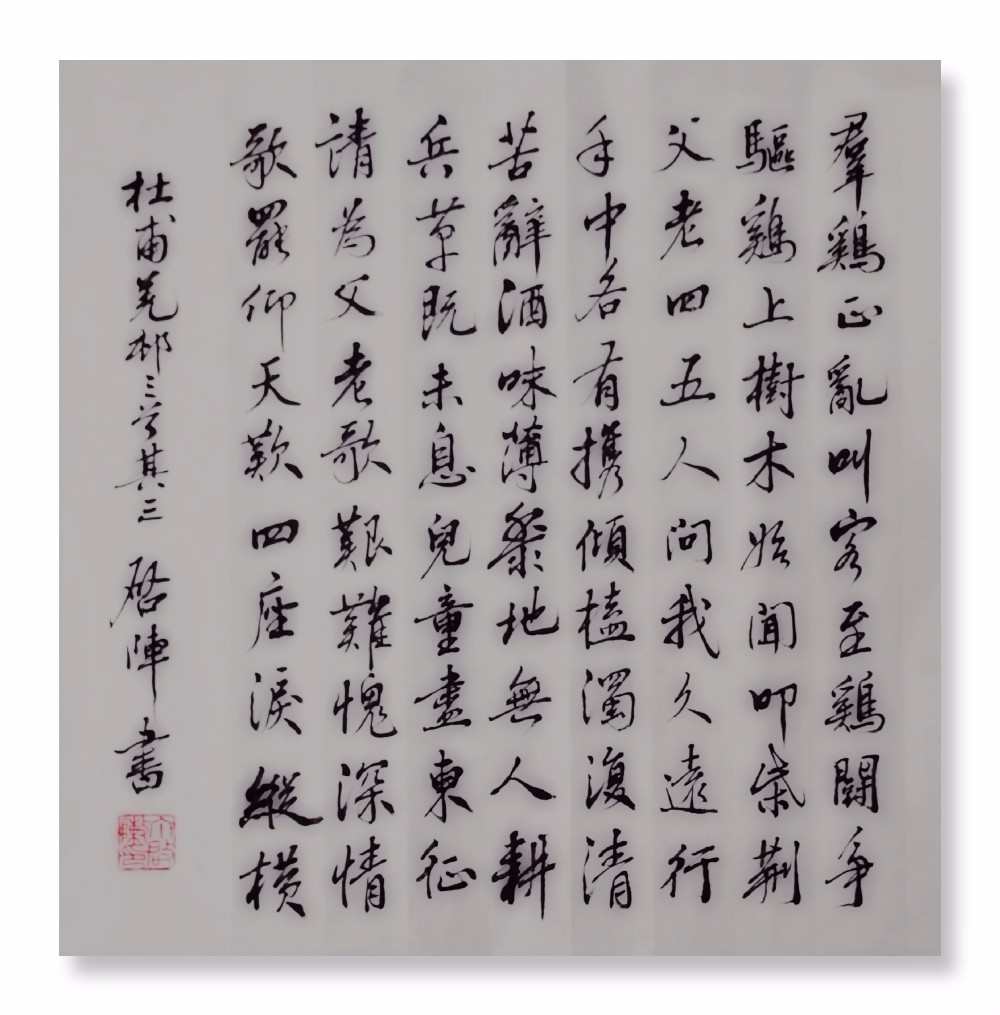 羣鷄正亂叫客至鷄鬪爭
驅鷄上樹木始聞叩柴荆
父老四五人問我久遠行
手中各有攜傾榼濁復清
苦辭酒味薄黍地無人耕
兵革既未息兒童盡東征
請為父老歌艱難愧深情
歌罷仰天歎四座淚縱橫
杜甫羌邨三首其三 啓陣書